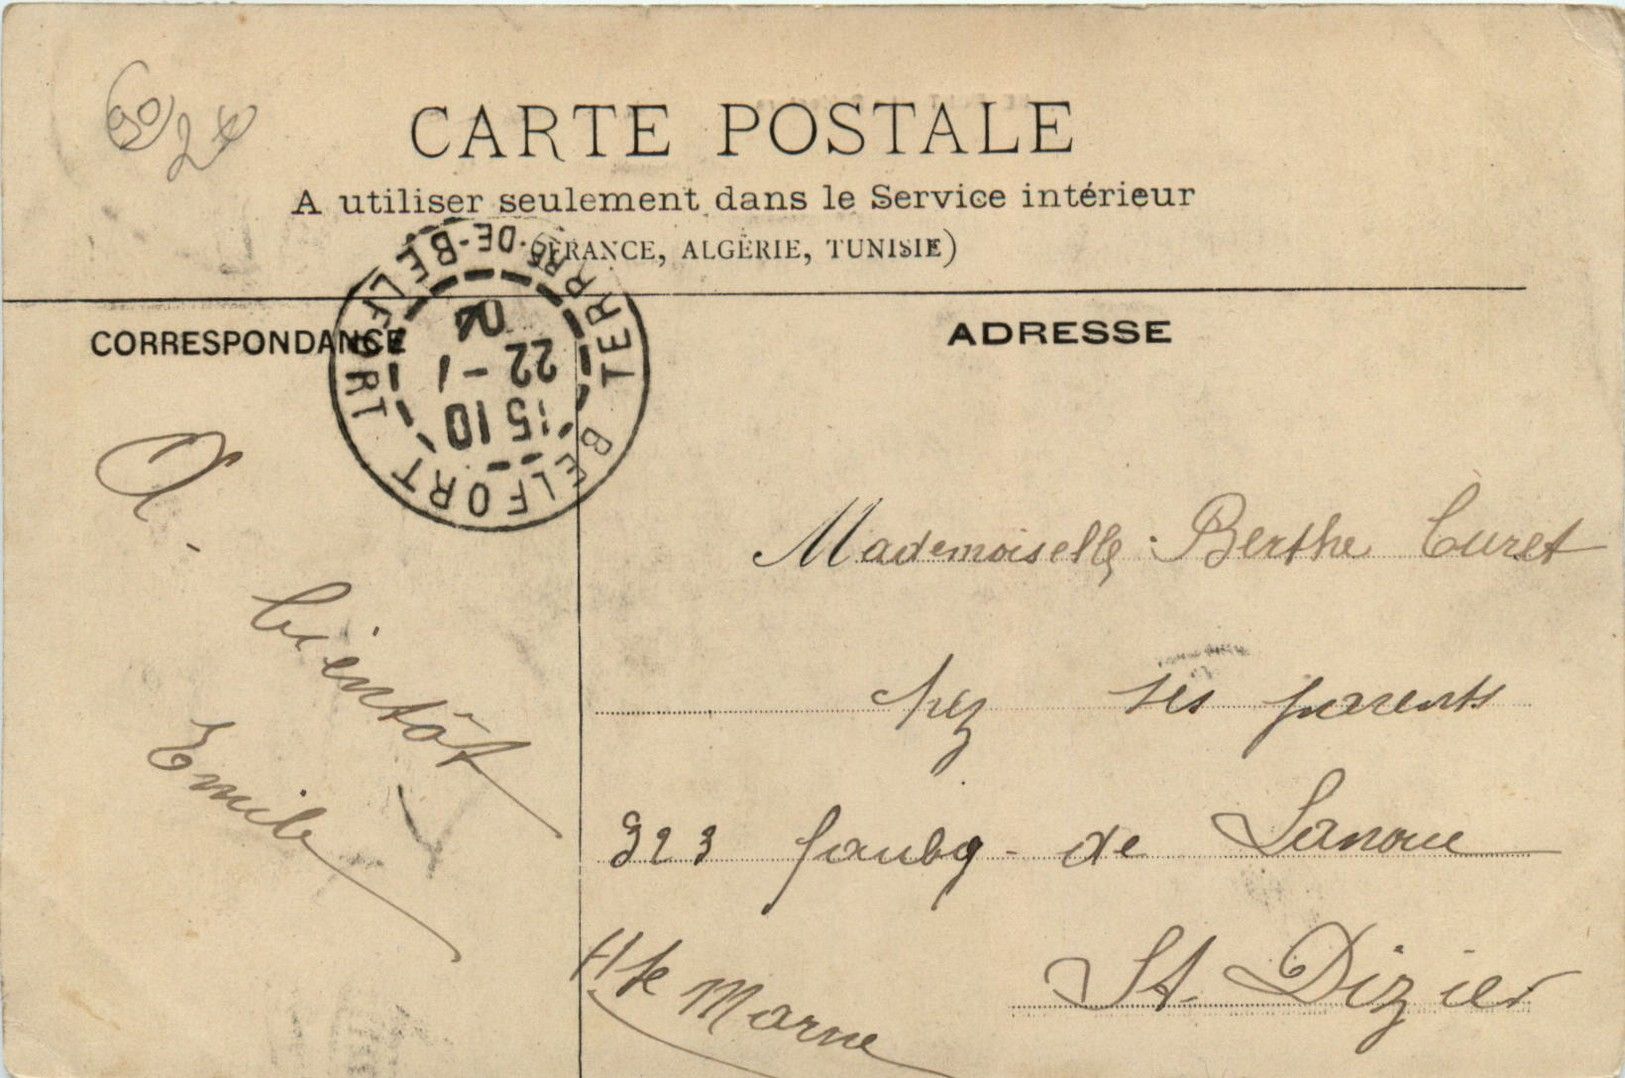 90/24
CARTE POSTALE
A utiliser seulement dans le Service intérieur
(FRANCE, ALGÉRIE, TUNISIE)
CORRESPONDANCE
ADRESSE
BELFORT TERRRE-DE-BELFORT
15 10
22 - 1
A.
bientôt
Emile
Mademoiselle Berthe Curet
chez ses parents
323 faubg - de Lanoue
St. Dizier
Hte Marne